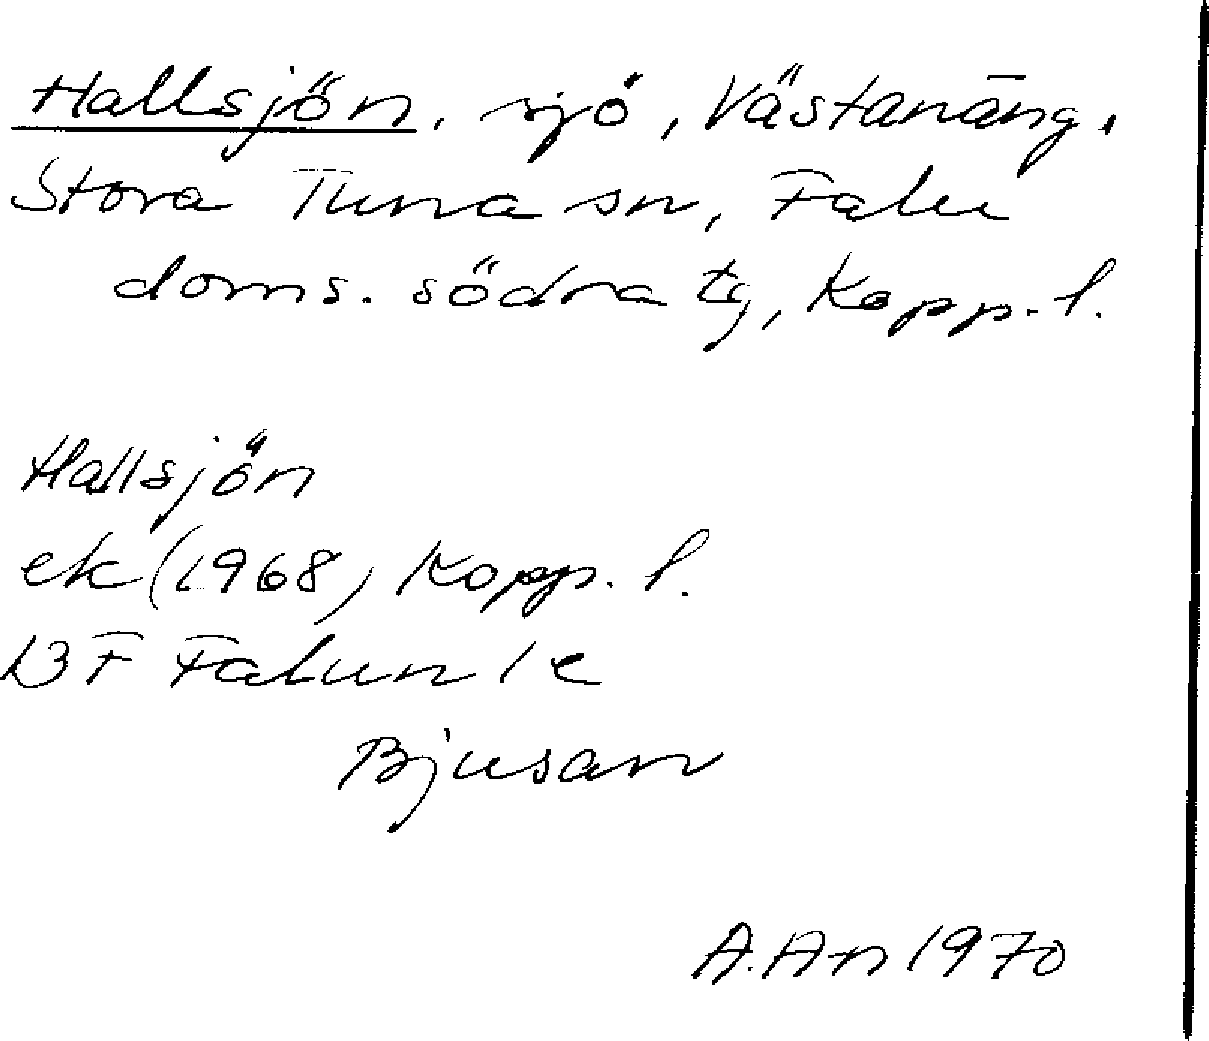 Hallsjön, sjö, Västanäng,
Stora Tuna sn, Falu
doms. södra tg, Kopp. l.
Hallsjön
ek (1968) Kopp. l.
BF Falun 1e
Bjusan
A. An 1970